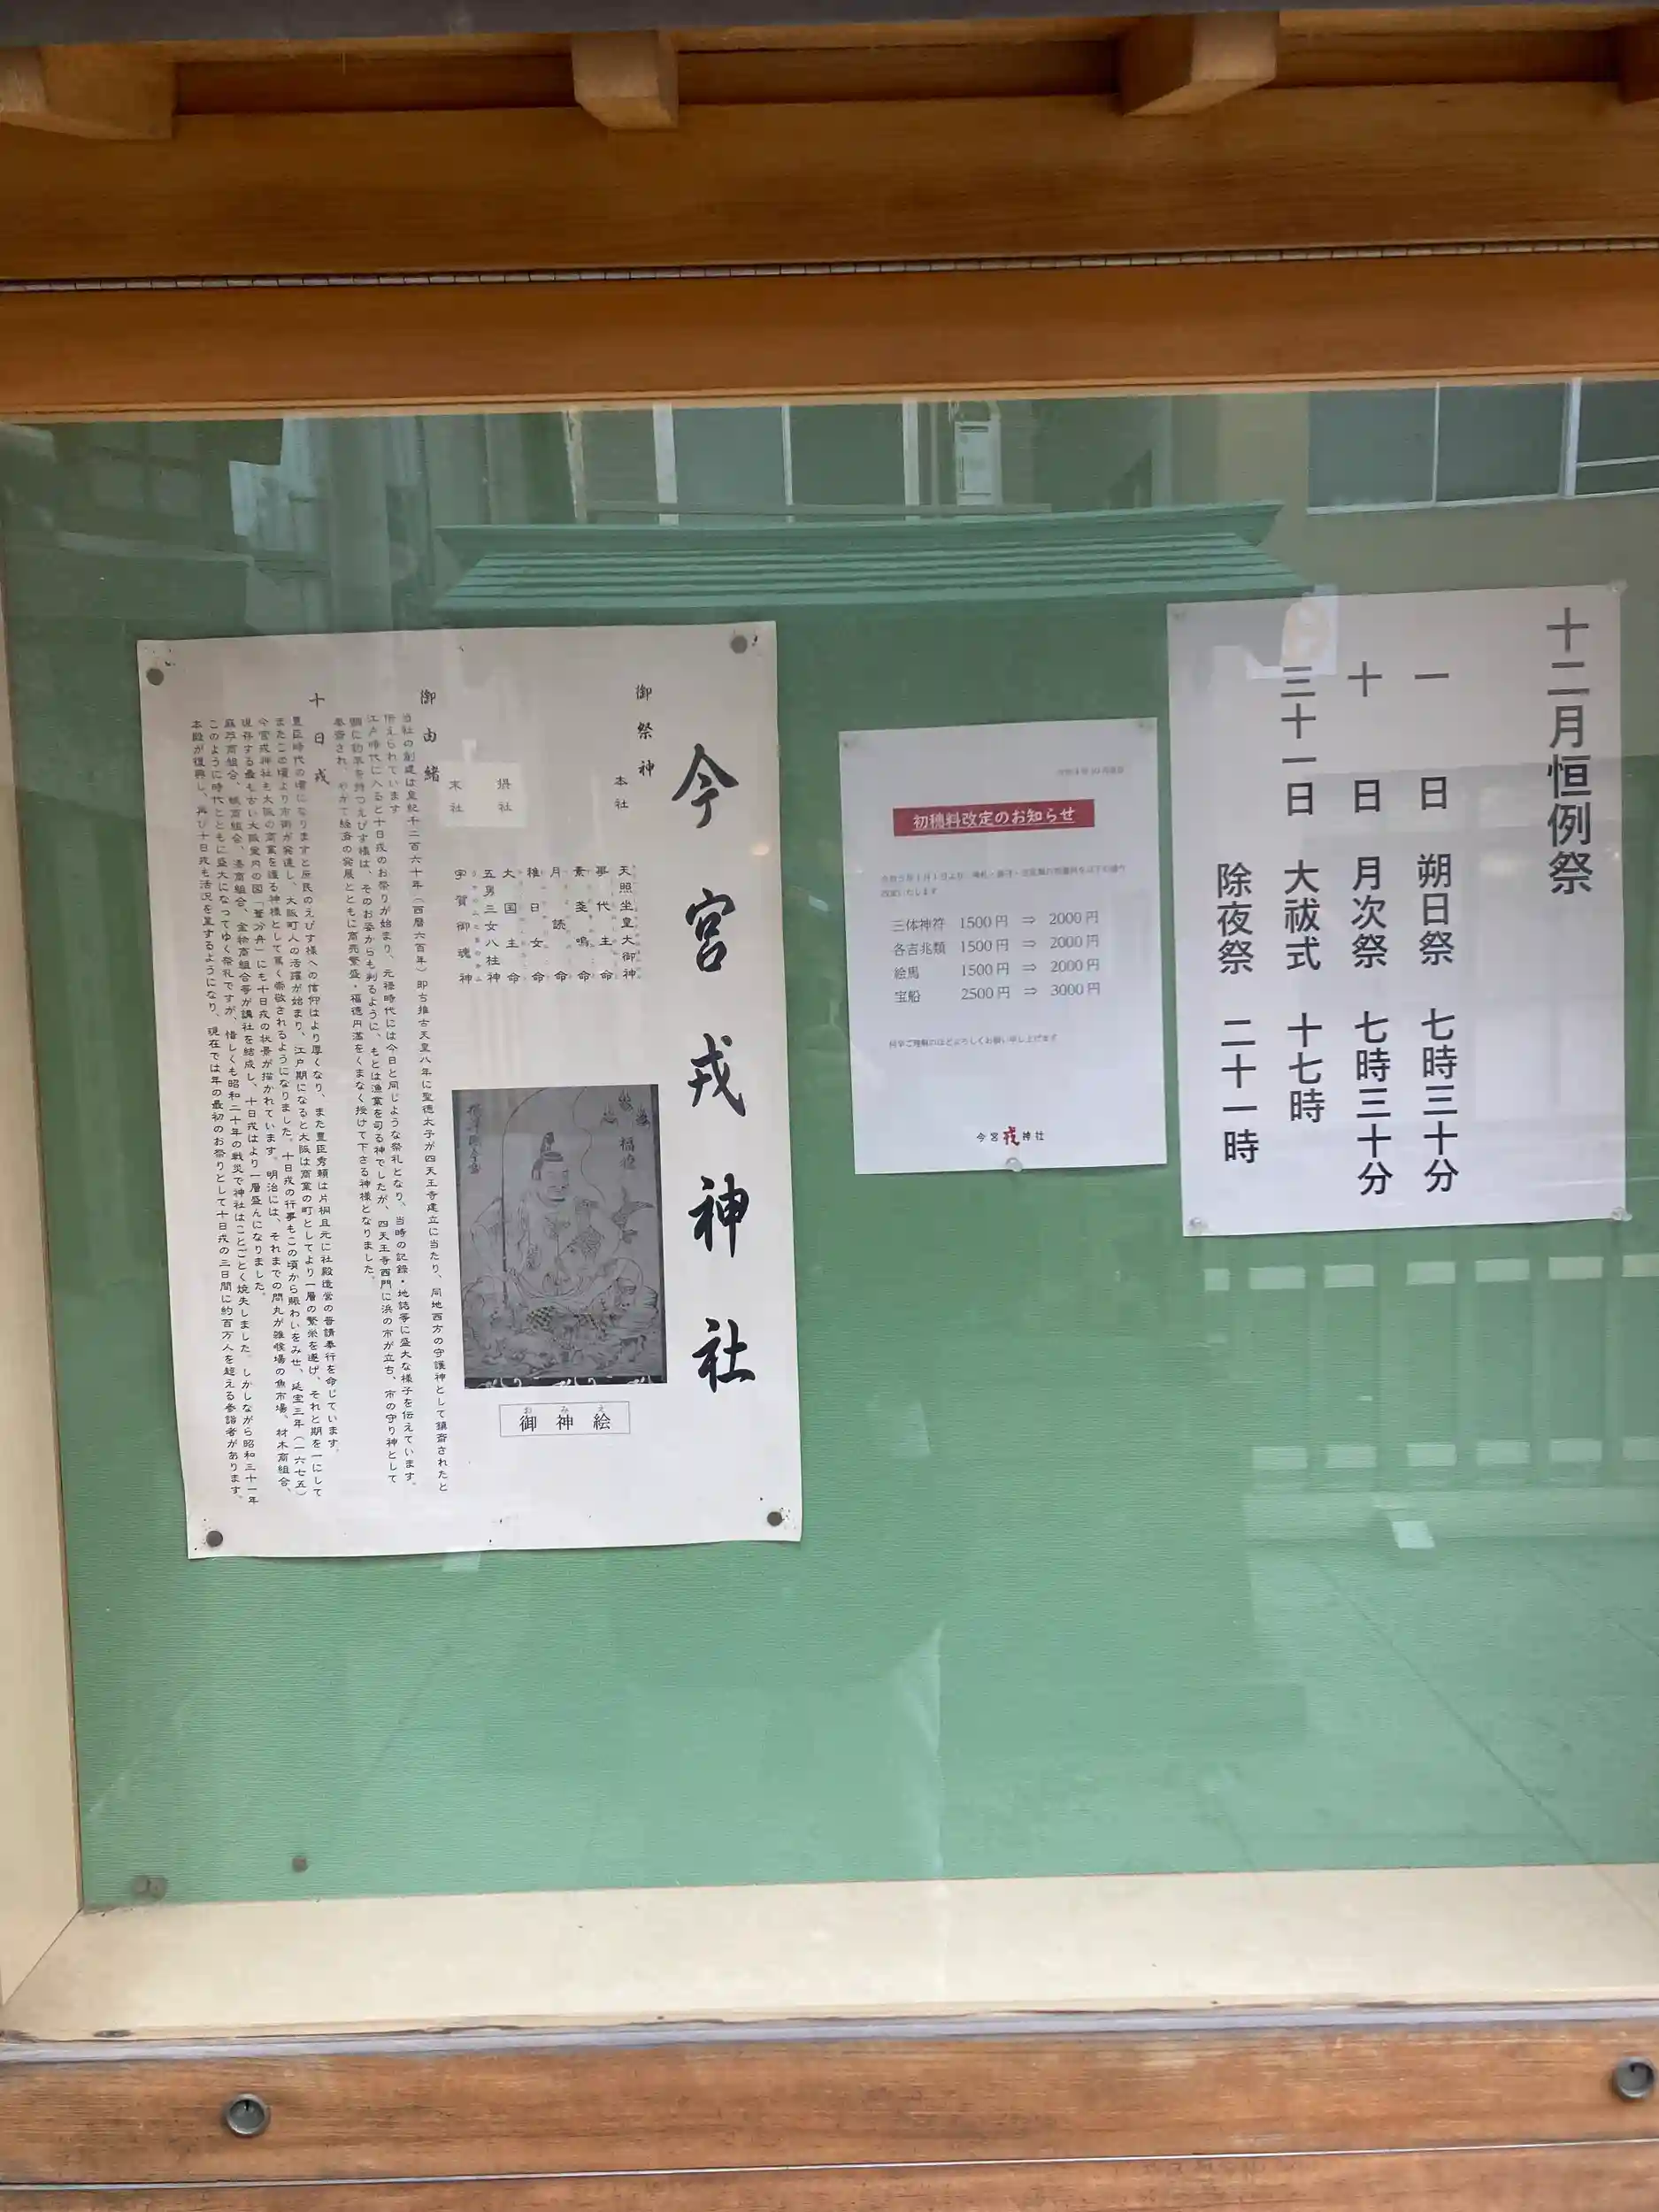 十二月恒例祭
一日 朔日祭 七時三十分
十日 月次祭 七時三十分
三十一日 大祓式 十七時
除夜祭 二十一時
初穂料改定のお知らせ
三体神符 1500円 ⇒ 2000円
各吉兆類 1500円 ⇒ 2000円
絵馬 1500円 ⇒ 2000円
宝船 2500円 ⇒ 3000円
何卒ご理解のほどよろしくお願い申し上げます
今宮戎神社
今宮戎神社
御祭神
本社
天照坐皇大御神
事代主命
素戔嗚命
月読命
稚日女命
倶社
大国主命
五男三女八柱神
末社
宇賀御魂神
おみえ
御神絵
御由緒
当社の創建は皇紀千二百六十年(西暦六百年)即ち推古天皇八年に聖徳太子が四天王寺建立に当たり、同地西方の守護神として鎮斎されたと
伝えられています
江戸時代に入ると十日戎のお祭りが始まり、元禄時代には今日と同じような祭礼となり、当時の記録・地誌等に盛大な様子を伝えています。
鯛に釣竿を持つえびす様は、そのお姿からも判るように、もとは漁業を司る神でしたが、四天王寺西門に浜の市が立ち、市の守り神として
奉斎され、やがて経済の発展とともに商売繁盛・福徳円満をくまなく授けて下さる神様となりました。
十日戎
豊臣時代の頃になりますと庶民のえびす様への信仰はより厚くなり、また豊臣秀頼は片桐且元に社殿造営の普請奉行を命じています。
またこの頃より市街が発達し、大阪町人の活躍が始まり、江戸期になると大阪は商業の町としてより一層の繁栄を遂げ、それと期を一にして
今宮戎神社も大阪の商業を護る神様として篤く崇敬されるようになりました。十日戎の行事もこの頃から賑わいをみせ、延宝三年(一六七五)
現存する最も古い大阪案内の図「葦分舟」にも十日戎の状景が描かれています。明治には、それまでの問丸が雑喉場の魚市場、材木商組合、
麻苧商組合、蝋商組合、漆商組合、金物商組合等が講社を結成し、十日戎はより一層盛んになりました。
このように時代とともに盛大になってゆく祭礼ですが、惜しくも昭和二十年の戦災で神社はことごとく焼失しました。しかしながら昭和三十一年
本殿が復興し、再び十日戎も活況を呈するようになり、現在では年の最初のお祭りとして十日戎の三日間に約百万人を超える参詣者があります。